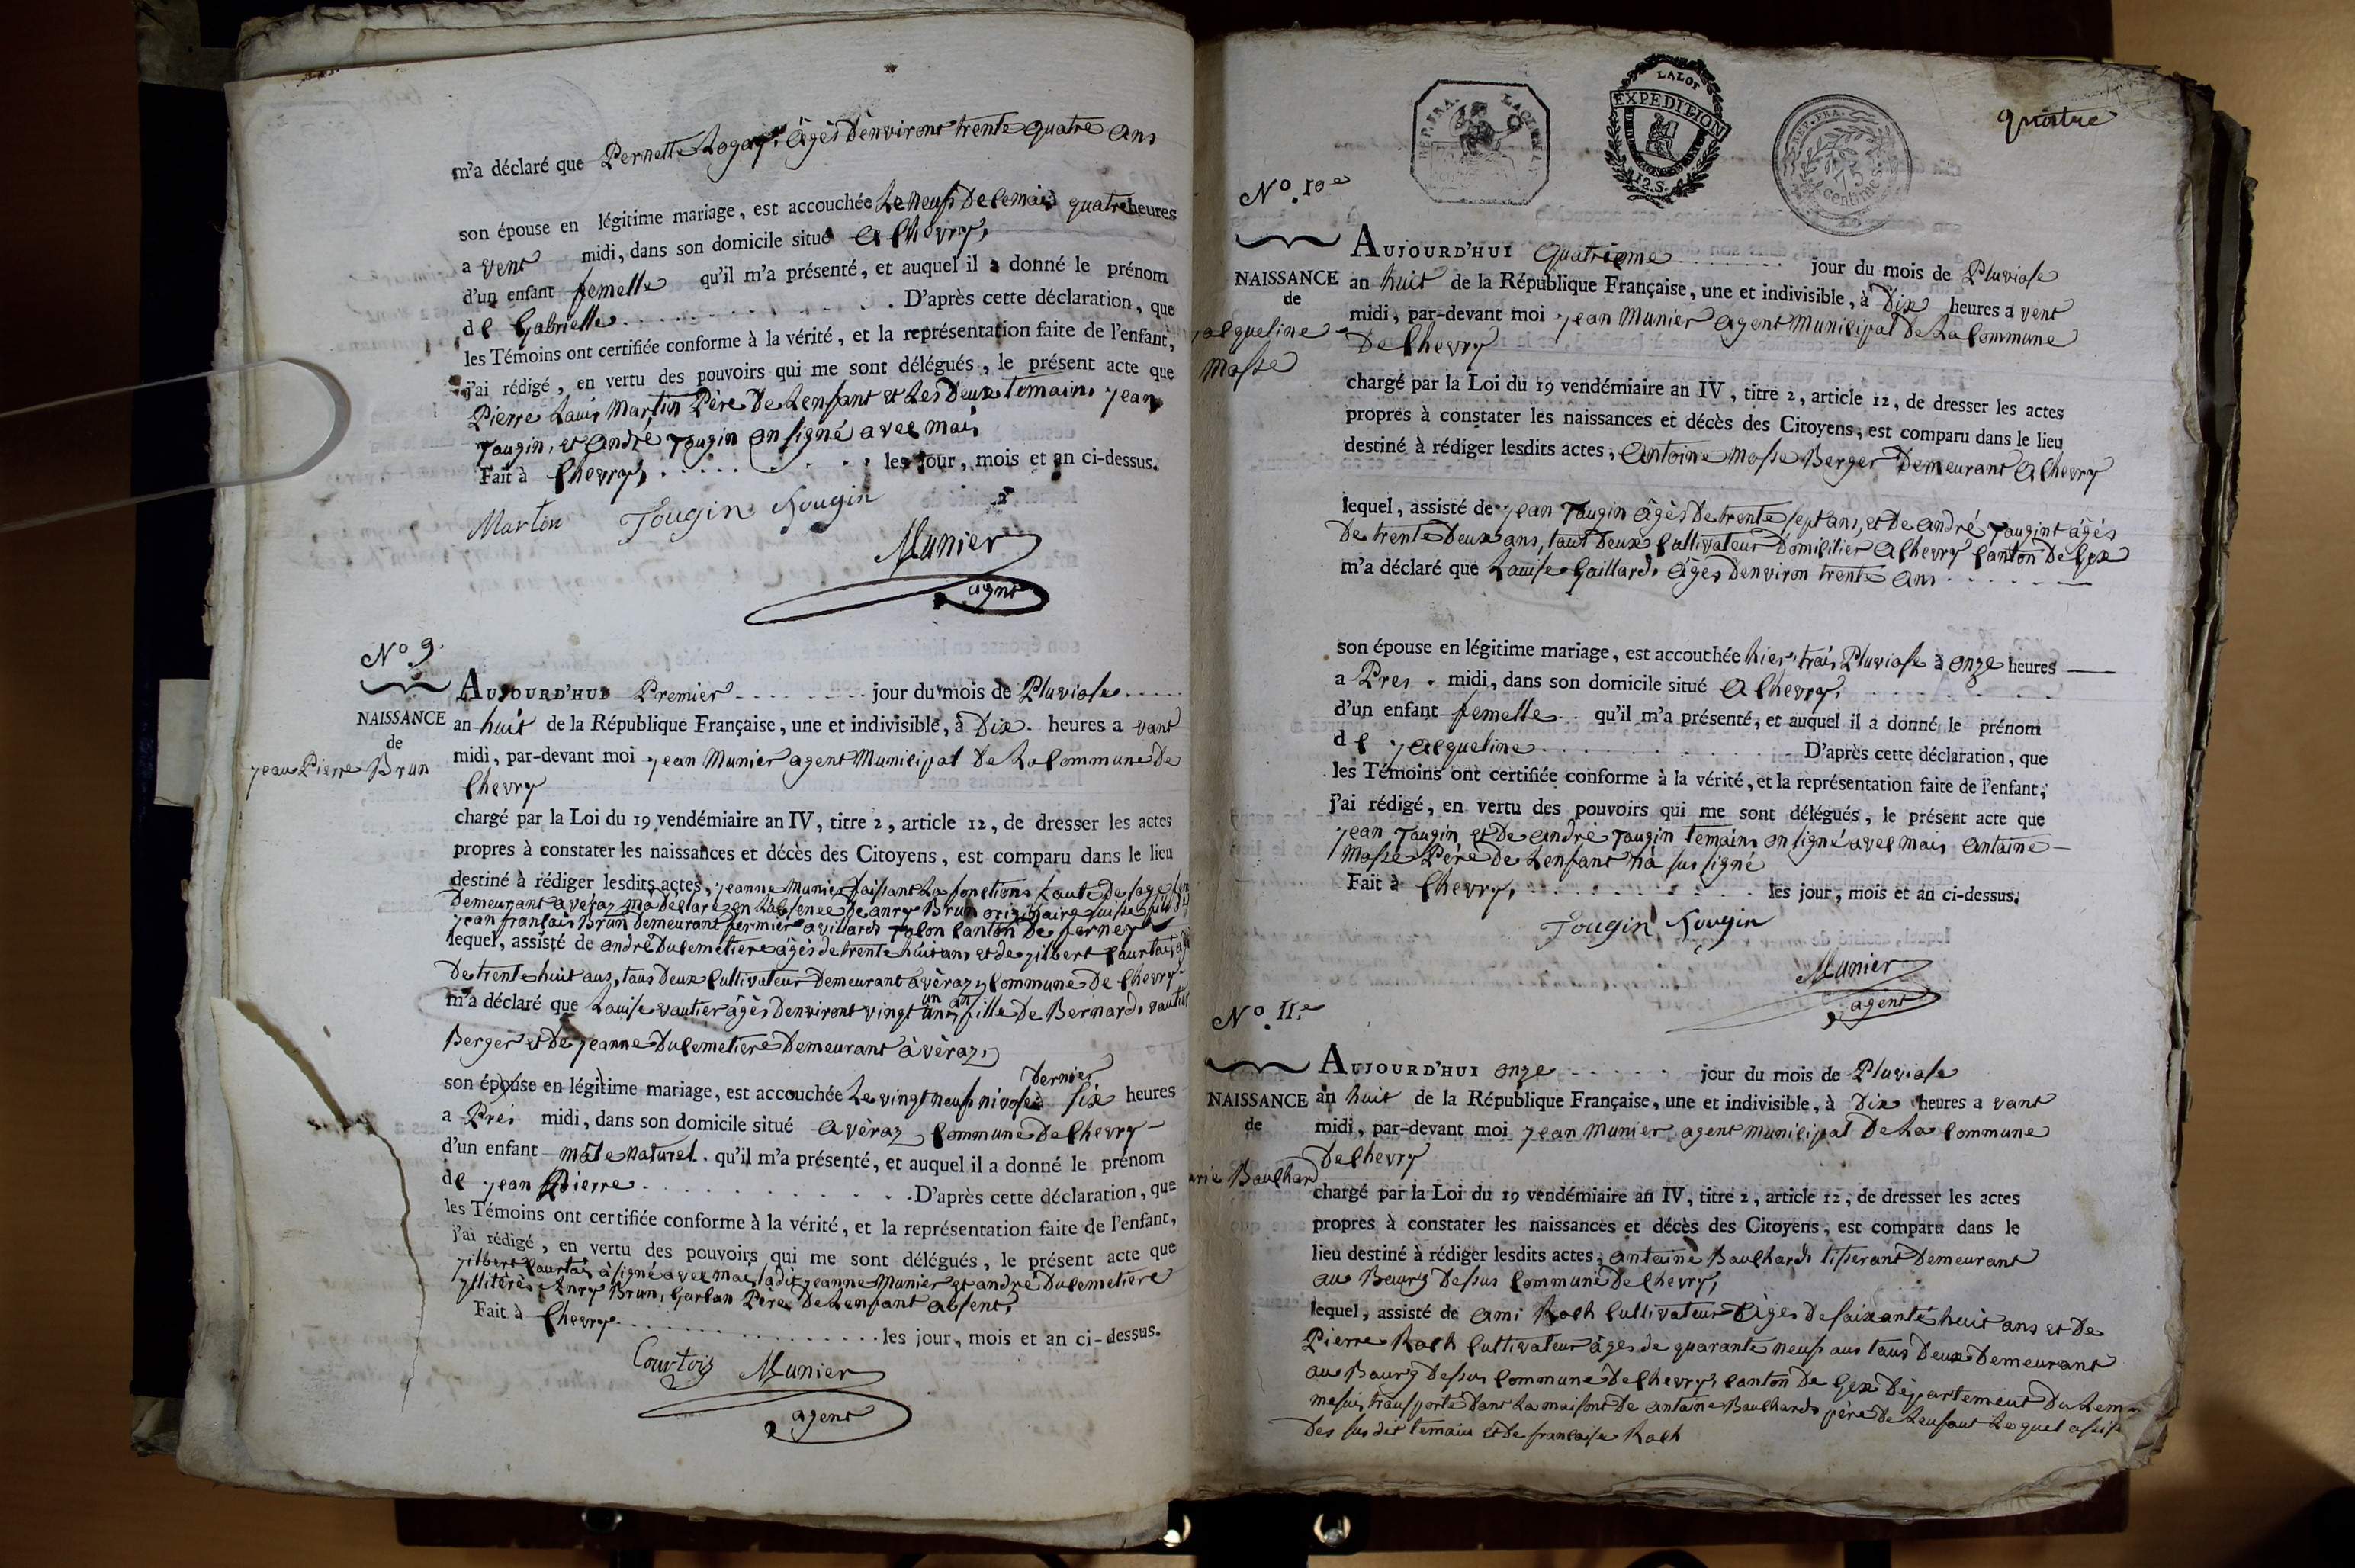 m'a déclaré que Pernette Logaz, âgés d'environt trente quatre ans
son épouse en légitime mariage, est accouchée Le neuf De ce mois à quatre heures
a vent midi, dans son domicile situé a Chevry,
d'un enfant femelle qu'il m'a présenté, et auquel il a donné le prénom
de Gabrielle. D'après cette déclaration, que
les Témoins ont certifiée conforme à la vérité, et la représentation faite de l'enfant,
j'ai rédigé, en vertu des pouvoirs qui me sont délégués, le présent acte que
Pierre Louis Martin Père De Lenfant et Les Deux temoins jean
Tougin, et andré Tougin on signé avec moi,
Fait à Chevry, les jour, mois et an ci-dessus.
Martin Tougin Tougin
Munier
agent
N° 9.
AUJOURD'HUI Premier jour du mois de Pluviose
NAISSANCE
de
jean Pierre Brun
an huit de la République Française, une et indivisible, à Dix heures a vant
midi, par-devant moi jean Munier agent Municipal De La Commune De
Chevry
chargé par la Loi du 19 vendémiaire an IV, titre 2, article 12, de dresser les actes
propres à constater les naissances et décès des Citoyens, est comparu dans le lieu
destiné à rédiger lesdits actes, jeanne Munier faissant La fonctions faute De sage
Demeurant a véraz ma Déclaré en Labsence De anry Brun originaire suisse fils
jean francois Brun Demeurant fermier a villard Tacon Canton De ferney
lequel, assisté de andré Ducemetiere âgés de trente huit ans et de jilbert Courtois
De trente huit ans, tous Deux Cultivateur Demeurant a véraz, Commune De Chevry
m'a déclaré que Louise vautier âgés Denviront vingt un an fille De Bernard vautier
Berger et De jeanne Ducemetiere Demeurant à véraz,
son épouse en légitime mariage, est accouchée Le vingt neuf nivose Dernier à six heures
a Prés midi, dans son domicile situé a véraz Commune De Chevry
d'un enfant mâle naturel qu'il m'a présenté, et auquel il a donné le prénom
de jean Pierre. D'après cette déclaration, que
les Témoins ont certifiée conforme à la vérité, et la représentation faite de l'enfant,
j'ai rédigé, en vertu des pouvoirs qui me sont délégués, le présent acte que
jilbert Courtois à signé avec moi, ladit jeanne Munier et andré Ducemetiere
jlliterés Anry Brun, Garcon Père De Lenfant absent,
Fait à Chevry les jour, mois et an ci-dessus.
Courtois Munier
agent
REP. FRA.
LALOI
EXPEDITION
12.S.
REP. FRA.
75 centimes
quatre
N° 10e
AUJOURD'HUI Quatrieme jour du mois de Pluviose
NAISSANCE
de
jacqueline
Masse
an huit de la République Française, une et indivisible, à Dix heures a vent
midi, par-devant moi jean Munier agent Municipal De La Commune
De Chevry
chargé par la Loi du 19 vendémiaire an IV, titre 2, article 12, de dresser les actes
propres à constater les naissances et décès des Citoyens, est comparu dans le lieu
destiné à rédiger lesdits actes, Antoine Masse Berger Demeurant a Chevry
lequel, assisté de jean Tougin âgés De trente sept ans, et De andré Tougint âgés
De trente Deux ans, tous Deux Cultivateur Domicilier a Chevry Canton De Gex
m'a déclaré que Louise Gaillard, âges Denviron trente ans
son épouse en légitime mariage, est accouchée hier, trois Pluviose à onze heures
a Pres midi, dans son domicile situé a Chevry,
d'un enfant femelle qu'il m'a présenté, et auquel il a donné le prénom
de jacqueline D'après cette déclaration, que
les Témoins ont certifiée conforme à la vérité, et la représentation faite de l'enfant,
j'ai rédigé, en vertu des pouvoirs qui me sont délégués, le présent acte que
jean Tougin et De andré Tougin temoins on signé avec moi, antoine
Masse Père De Lenfant n'a su signé
Fait à Chevry, les jour, mois et an ci-dessus.
Tougin Tougin
Munier
agent
N° 11.e
AUJOURD'HUI onze jour du mois de Pluviose
NAISSANCE
de
arie Baulhard
an huit de la République Française, une et indivisible, à Dix heures a vant
midi, par-devant moi jean Munier agent municipal De La Commune
De Chevry
chargé par la Loi du 19 vendémiaire an IV, titre 2, article 12, de dresser les actes
propres à constater les naissances et décès des Citoyens, est comparu dans le
lieu destiné à rédiger lesdits actes, antoine Baulhard tisserant Demeurant
au Bourg Dessus Commune De Chevry,
lequel, assisté de ami Roch Cultivateur âgés De soixante huit ans et De
Pierre Roch Cultivateur âgés de quarante neuf ans tous Deux Demeurant
au Bourg Dessus Commune De Chevry, Canton De Gex Département Du Lem
me suis transporté Dans La maisont De antoine Baulhard père De Lenfant Lequel assist
Des susdit temoins et De francoise Roch